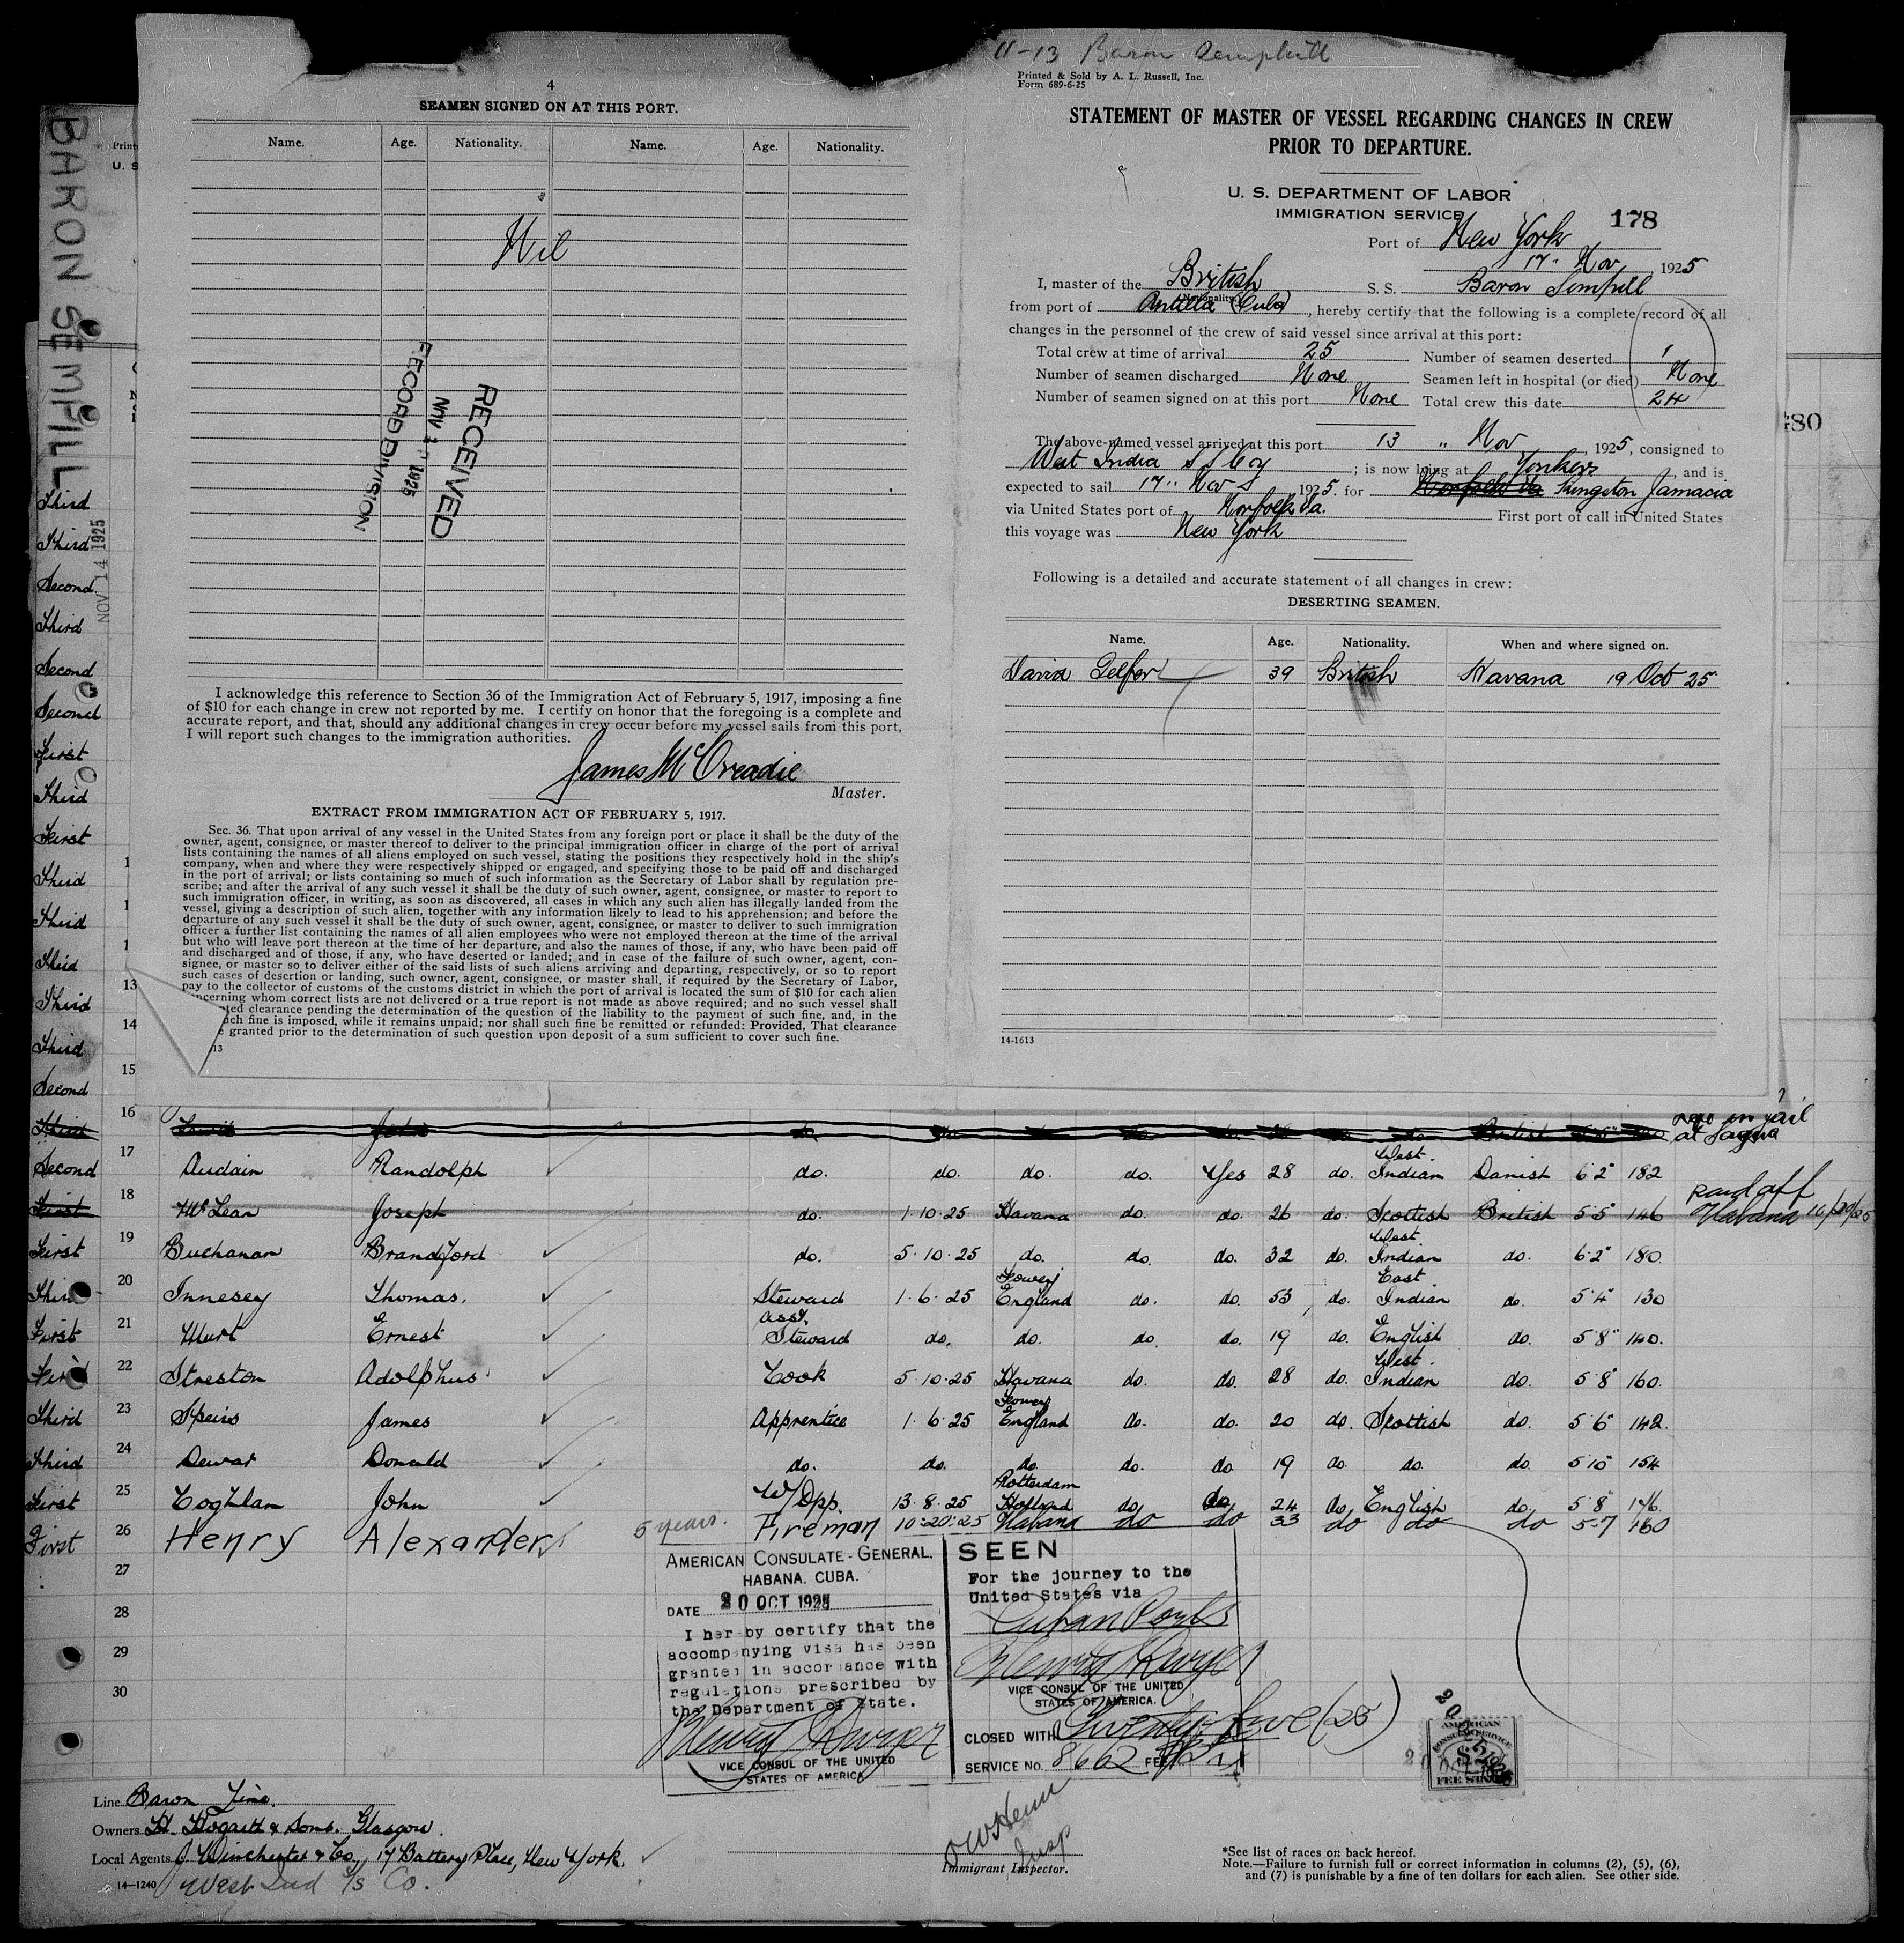 BARON SEMPILL
NOV 14 1925
4
SEAMEN SIGNED ON AT THIS PORT.
Name. Age. Nationality. Name. Age. Nationality.
Nil
RECEIVED
NOV 1925
RECORD DIVISION
I acknowledge this reference to Section 36 of the Immigration Act of February 5, 1917, imposing a fine
of $10 for each change in crew not reported by me. I certify on honor that the foregoing is a complete and
accurate report, and that, should any additional changes in crew occur before my vessel sails from this port,
I will report such changes to the immigration authorities.
James McCreadie
Master.
EXTRACT FROM IMMIGRATION ACT OF FEBRUARY 5, 1917.
Sec. 36. That upon arrival of any vessel in the United States from any foreign port or place it shall be the duty of the
owner, agent, consignee, or master thereof to deliver to the principal immigration officer in charge of the port of arrival
lists containing the names of all aliens employed on such vessel, stating the positions they respectively hold in the ship's
company, when and where they were respectively shipped or engaged, and specifying those to be paid off and discharged
in the port of arrival; or lists containing so much of such information as the Secretary of Labor shall by regulation pre-
scribe; and after the arrival of any such vessel it shall be the duty of such owner, agent, consignee, or master to report to
such immigration officer, in writing, as soon as discovered, all cases in which any such alien has illegally landed from the
vessel, giving a description of such alien, together with any information likely to lead to his apprehension; and before the
departure of any such vessel it shall be the duty of such owner, agent, consignee, or master to deliver to such immigration
officer a further list containing the names of all alien employees who were not employed thereon at the time of the arrival
but who will leave port thereon at the time of her departure, and also the names of those, if any, who have been paid off
and discharged and of those, if any, who have deserted or landed; and in case of the failure of such owner, agent, con-
signee, or master so to deliver either of the said lists of such aliens arriving and departing, respectively, or so to report
such cases of desertion or landing, such owner, agent, consignee, or master shall, if required by the Secretary of Labor,
pay to the collector of customs of the customs district in which the port of arrival is located the sum of $10 for each alien
concerning whom correct lists are not delivered or a true report is not made as above required; and no such vessel shall
ted clearance pending the determination of the question of the liability to the payment of such fine, and, in the
ch fine is imposed, while it remains unpaid; nor shall such fine be remitted or refunded: Provided, That clearance
granted prior to the determination of such question upon deposit of a sum sufficient to cover such fine.
13
11-13 Baron Sempill
Printed & Sold by A. L. Russell, Inc.
Form 689-6-25
STATEMENT OF MASTER OF VESSEL REGARDING CHANGES IN CREW
PRIOR TO DEPARTURE.
U. S. DEPARTMENT OF LABOR
IMMIGRATION SERVICE
178
Port of New York
17" Nov, 1925
I, master of the British S. S. Baron Sempill
(Nationality)
from port of Antilla (Cuba), hereby certify that the following is a complete record of all
changes in the personnel of the crew of said vessel since arrival at this port:
Total crew at time of arrival 25 Number of seamen deserted 1
Number of seamen discharged None Seamen left in hospital (or died) None
Number of seamen signed on at this port None Total crew this date 24
The above-named vessel arrived at this port 13 " Nov, 1925, consigned to
West India S S Coy; is now lying at Yonkers, and is
expected to sail 17" Nov 1925. for Norfolk Va Kingston Jamacia
via United States port of Norfolk Va. First port of call in United States
this voyage was New York
Following is a detailed and accurate statement of all changes in crew:
DESERTING SEAMEN.
Name. Age. Nationality. When and where signed on.
David Telfer 39 British Havana 19 Oct 25
14-1613
480
Third
Third
Second
Third
Second
Second
First
Third
First
Third
Third
Third
Third 13
Third 14
Second 15
Third 16 Lewis John do. do. do. do. do. do. do. British now in jail
at Sagua
Second 17 Audain Randolph do. do. do. do. Yes 28 do. West Indian Danish 6'2" 182
First 18 McLean Joseph do. 1·10·25 Havana do. do. 26 do. Scottish British 5'5" 146 paid off Habana 10/20/25
First 19 Buchanan Brandford do. 5·10·25 do. do. do. 32 do. West Indian do. 6'2" 180
Third 20 Innesey Thomas. Steward 1·6·25 Fowey England do. do. 53 do. East Indian do. 5'4" 130
First 21 Murt Ernest Asst. Steward do. do. do. do. 19 do. English do. 5'8" 140.
First 22 Streston Adolphus Cook 5·10·25 Havana do. do. 28 do. West Indian do. 5'8" 160.
Third 23 Speirs James Apprentice 1·6·25 Fowey England do. do. 20 do. Scottish do. 5'6" 142.
Third 24 Dewar Donald do. do. do. do. do. 19 do. do. do. 5'10" 154
First 25 Coghlan John W/Opp. 13·8·25 Rotterdam Holland do. do. 24 do. English do. 5'8" 146.
First 26 Henry Alexander 5 years. Fireman 10-20-25 Habana do do 33 do do do 5-7 160
27
28
29
30
AMERICAN CONSULATE-GENERAL.
HABANA, CUBA.
DATE 20 OCT 1925
I hereby certify that the
accompanying visa has been
granted in accordance with
regulations prescribed by
the Department of State.
VICE CONSUL OF THE UNITED
STATES OF AMERICA
SEEN
For the journey to the
United States via
Cuban Ports
VICE CONSUL OF THE UNITED
STATES OF AMERICA.
CLOSED WITH Twenty five (25)
SERVICE NO. 8662 FEE
AMERICAN
CONSULAR SERVICE
$2
FEE STAMP
Line Baron Line.
Owners H. Hogarth & Sons. Glasgow.
Local Agents J Winchester & Co., 17 Battery Place, New York.
14-1240 West Ind S/S Co.
Insp
Immigrant Inspector.
*See list of races on back hereof.
Note.—Failure to furnish full or correct information in columns (2), (5), (6),
and (7) is punishable by a fine of ten dollars for each alien. See other side.